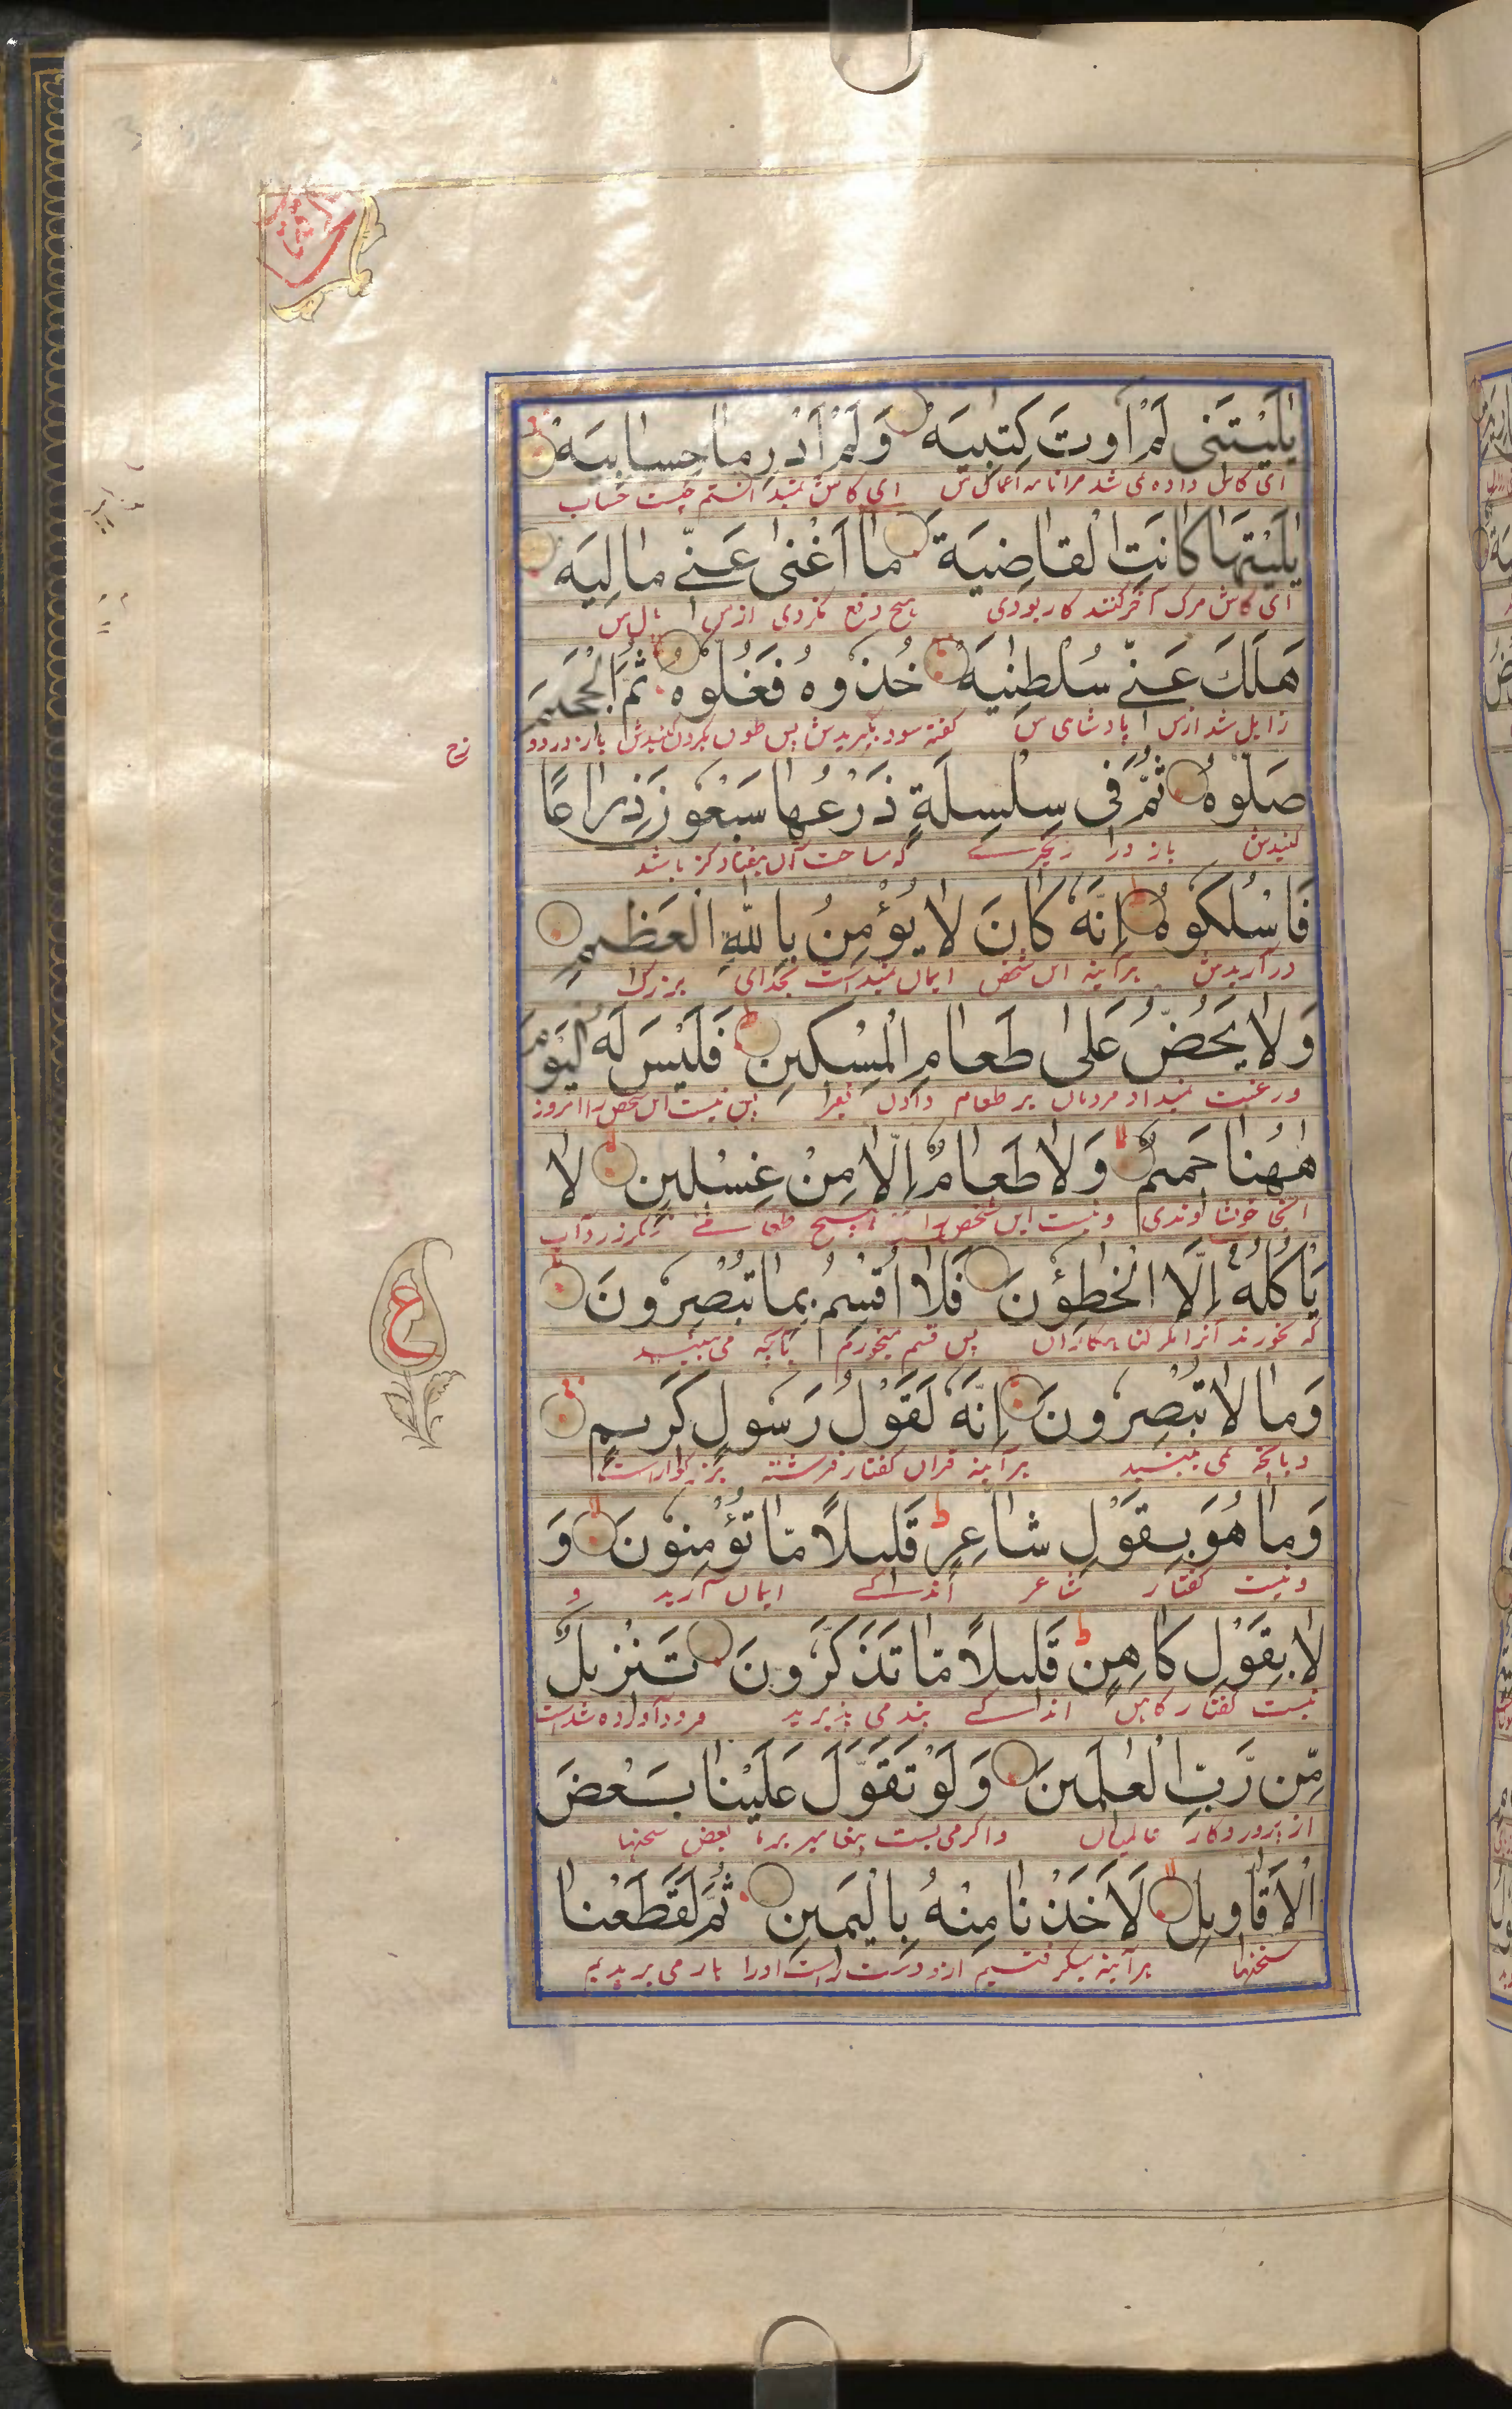 یٰلَیْتَنِی لَمْ اُوتَ كِتٰبِیَهْ وَلَمْ اَدْرِ مَا حِسَابِیَهْ
ای کاش داده نمی شد مرا نامه اعمال من ای کاش نمیدانستم چیست حساب
یٰلَیْتَهَا كَانَتِ الْقَاضِیَةَ مَا اَغْنٰی عَنِّی مَالِیَهْ
ای کاش مرک آخر کنند کار بودی هیچ دفع نکردی از من مال من
هَلَكَ عَنِّی سُلْطٰنِیَهْ خُذُوهُ فَغُلُّوهُ ثُمَّ الْجَحِیمَ
زایل شد از من پادشای من کفته سود بگیریدش پس طوق بکردن کنیدش باز در دو
زخ
صَلُّوهُ ثُمَّ فِی سِلْسِلَةٍ ذَرْعُهَا سَبْعُونَ ذِرَاعًا
کنیدش باز در زنجیرے که ساحت آن هفتاد کز باشد
فَاسْلُكُوهُ اِنَّهٗ كَانَ لَا یُؤْمِنُ بِاللّٰهِ الْعَظِیمِ
درآریدش هرآینه این شخص ایمان نمیداشت بخدای بزرک
وَلَا یَحُضُّ عَلٰی طَعَامِ الْمِسْكِینِ فَلَیْسَ لَهُ الْیَوْمَ
و رغبت نمیداد مردمان بر طعام دادن فقیرا پس نیست این شخص را امروز
هٰهُنَا حَمِیمٌ وَلَا طَعَامٌ اِلَّا مِنْ غِسْلِینٍ لَا
اینجا خویشاوندی و نیست این شخص را هیچ طعامے مکر زرداب
یَاْكُلُهٗ اِلَّا الْخٰطِؤُنَ فَلَا اُقْسِمُ بِمَا تُبْصِرُونَ
که نخورند آنرا مکر کناهکاران پس قسم میخورم بآنچه می بینید
ع
وَمَا لَا تُبْصِرُونَ اِنَّهٗ لَقَوْلُ رَسُولٍ كَرِیمٍ
و بآنچه نمی بینید هرآینه قران کفتار فرشته بزرکوار است
وَمَا هُوَ بِقَوْلِ شَاعِرٍ ط قَلِیلًا مَّا تُؤْمِنُونَ وَ
و نیست کفتار شاعر اندکے ایمان آرید و
لَا بِقَوْلِ كَاهِنٍ ط قَلِیلًا مَّا تَذَكَّرُونَ تَنْزِیلٌ
نیست کفتار کاهن اندکے پند می پذیرید فرود آورده شده است
مِّن رَّبِّ الْعٰلَمِینَ وَلَوْ تَقَوَّلَ عَلَیْنَا بَعْضَ
از پروردکار عالمیان و اکر می بست پیغامبر بر ما بعض سخنها
الْاَقَاوِیلِ لَاَخَذْنَا مِنْهُ بِالْیَمِینِ ثُمَّ لَقَطَعْنَا
سخنها هرآینه میکرفتیم از و دست راست اورا باز می بریدیم